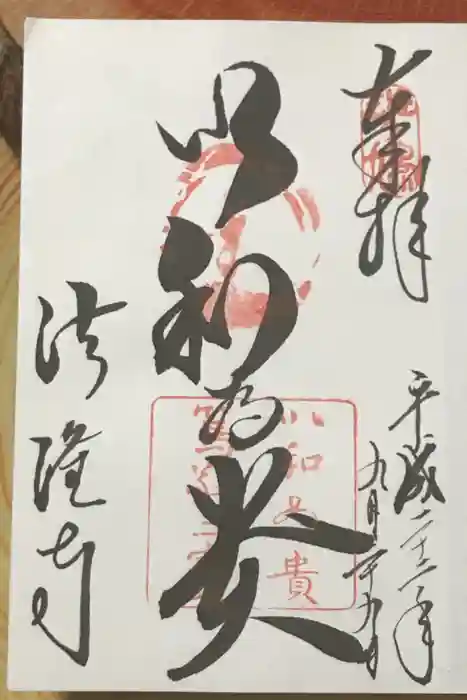 奉拝
平成二十二年
九月二十九日
以和為貴
以和為貴
法隆寺